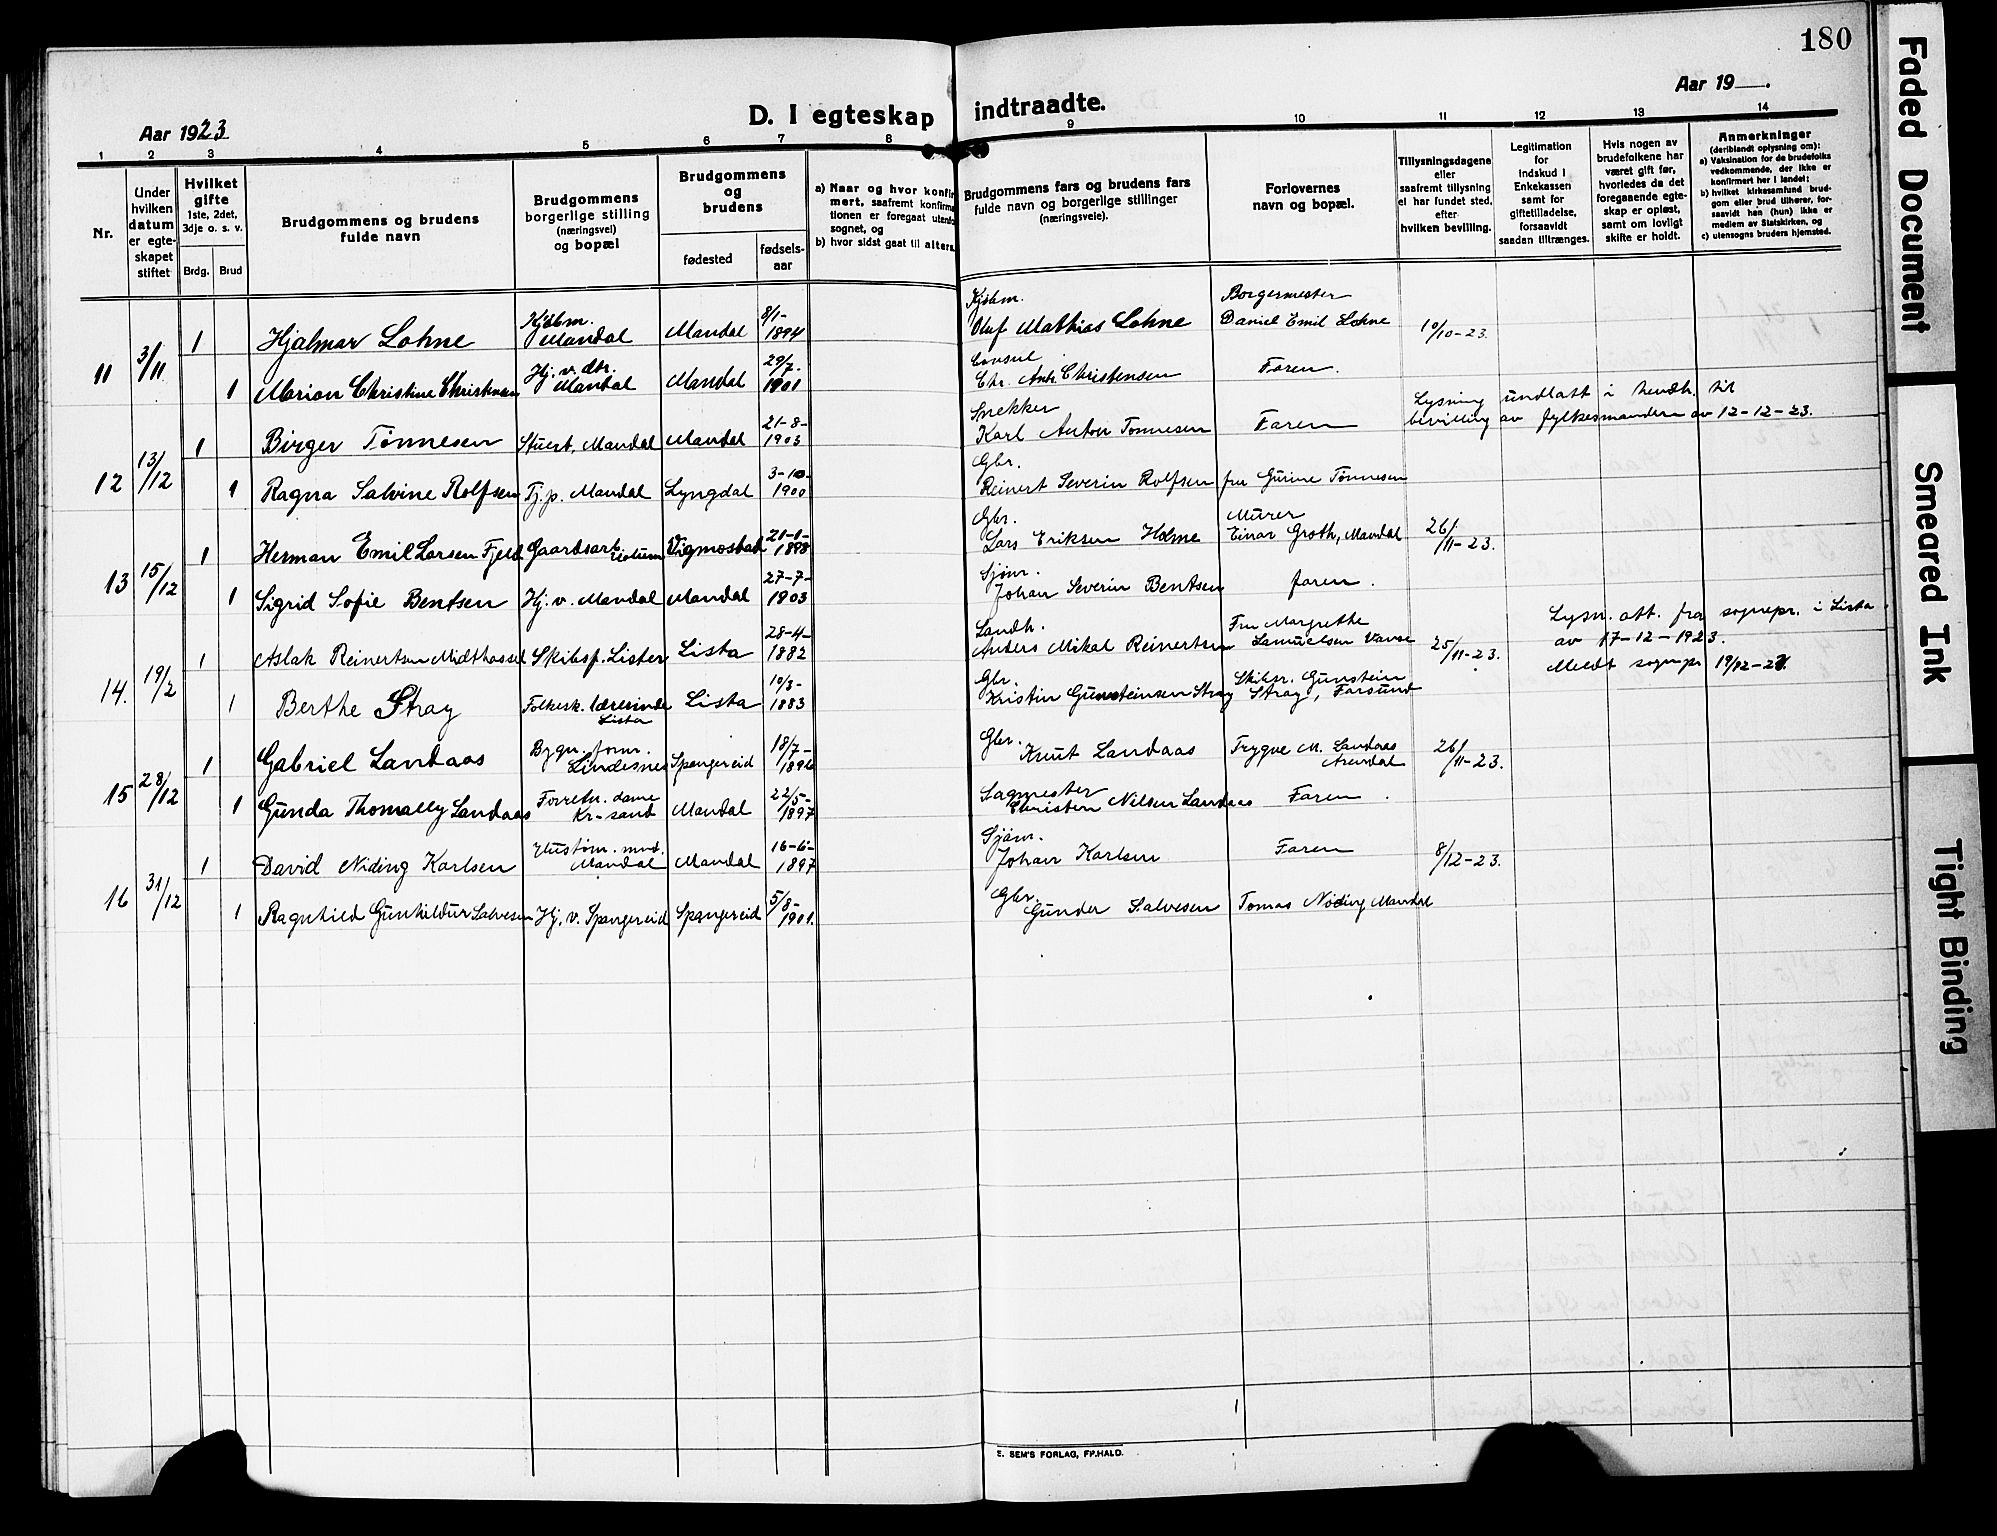 180
Aar 1923
D. I egteskap indtraadte.
Aar 19 .
1 2 3 4 5 6 7 8 9 10 11 12 13 14
Nr.
Under hvilken datum er egte-skapet stiftet
Hvilket gifte
1ste, 2det, 3dje o. s. v.
Brdg. Brud
Brudgommens og brudens fulde navn
Brudgommens borgerlige stilling (næringsvei) og bopæl
Brudgommens og brudens
fødested
fødsels-aar
a) Naar og hvor konfir
mert, saafremt konfirma
tionen er foregaat utenfo
sognet, og
b) hvor sidst gaat til alters.
Brudgommens fars og brudens fars
fulde navn og borgerlige stillinger
(næringsveie).
Forlovernes
navn og bopæl.
Tillysningsdagene
eller
saafremt tillysning
ei har fundet sted,
efter
hvilken bevilling.
Legitimation
for
Indskud i
Enkekassen
samt for
giftetilladelse,
forsaavidt
saadan tiltrænges.
Hvis nogen av
brudefolkene har
været gift før,
hvorledes da det
foregaaende egte-
skap er opløst,
samt om lovligt
skifte er holdt.
Anmerkninger
(deriblandt oplysning om):
a) Vaksination for de brudefolks
vedkommende, der ikke er
konfirmert her i landet;
b) hvilket kirkesamfund brud-
gom eller brud tilhører, for-
saavidt han (hun) ikke er
medlem av Statskirken, og
c) utensogns bruders hjemsted.
11 3/11 1 Hjalmar Lohne Kjøbm. Mandal Mandal 8/1-1894 Kjøbm. Oluf Mathias Lohne Borgermester Daniel Emil Lohne 10/10-23.
1 Marion Christine Christensen Hj. v. dtr. Mandal Mandal 29/7. 1901 Consul Chr. Anh. Christensen Faren.
12 13/12 1 Birger Tønnesen Stuert, Mandal Mandal 21-8-1903 Snekker Karl Anton Tønnesen Faren Lysning undlatt i henh. til
bevilling av fylkesmanden av 12-12-23.
1 Ragna Salvine Rolfsen Tj. p. Mandal Lyngdal 3-10-1900 Gbr. Reinert Severin Rolfsen fru Gurine Tønnesen
13 15/12 1 Herman Emil Larsen Fjeld Gaardsarb. Vigmostad 21-1-1898 Gbr. Lars Eriksen Holme Murer Einar Groth, Mandal 26/11-23.
1 Sigrid Sofie Bentsen Hj. v. Mandal Mandal 27-7-1903 Sjøm. Johan Severin Bentsen faren.
14. 19/12 1 Aslak Reinertsen Midthassel Skibsf. Lister Lista 28-4-1882 Landh. Anders Mikal Reinertsen Fru Margrethe Samuelsen Vanse 25/11-23. Lysn. att. fra sognepr. i Lista
av 17-12-1923.
Meldt sognepr 19/12-23.
1 Berthe Stray Folkesk. lærerinde Lista Lista 10/3-1883 Gbr. Kristin Gunsteinsen Stray Skibsr. Gunstein Stray, Farsund
15 28/12 1 Gabriel Landaas Bygn. form. Lindesnes Spangereid 18/7-1896 Gbr. Knut Landaas Trygve M. Landaas Arendal 26/11-23.
1 Gunda Thomally Landaas Forretn. dame Kr-sand Mandal 22/5-1897 Sagmester Christen Nilsen Landaas Faren.
16 31/12 1 David Niding Karlsen Hustøm. Mandal Mandal 16-6-1897 Sjøm. Johan Karlsen Faren 8/12-23.
1 Ragnhild Gunhildur Salvesen Hj. v. Spangereid Spangereid 5/8-1901. Gbr. Gunder Salvesen Tomas Noding Mandal
E. SEM'S FORLAG, FR.HALD.
Faded Document
Smeared Ink
Tight Binding